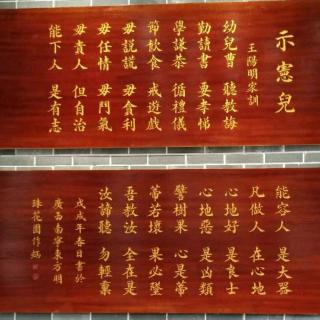 示憲兒
王陽明家訓
幼兒曹 聽教誨
勤讀書 要孝悌
學謙恭 循禮儀
節飲食 戒遊戲
毋說謊 毋貪利
毋任情 毋鬥氣
毋責人 但自治
能下人 是有志
能容人 是大器
凡做人 在心地
心地好 是良士
心地惡 是凶類
譬樹果 心是蒂
蒂若壞 果必墜
吾教汝 全在是
汝諦聽 勿輕棄
戊戌年春日書於
廣西南寧東方明
珠花園